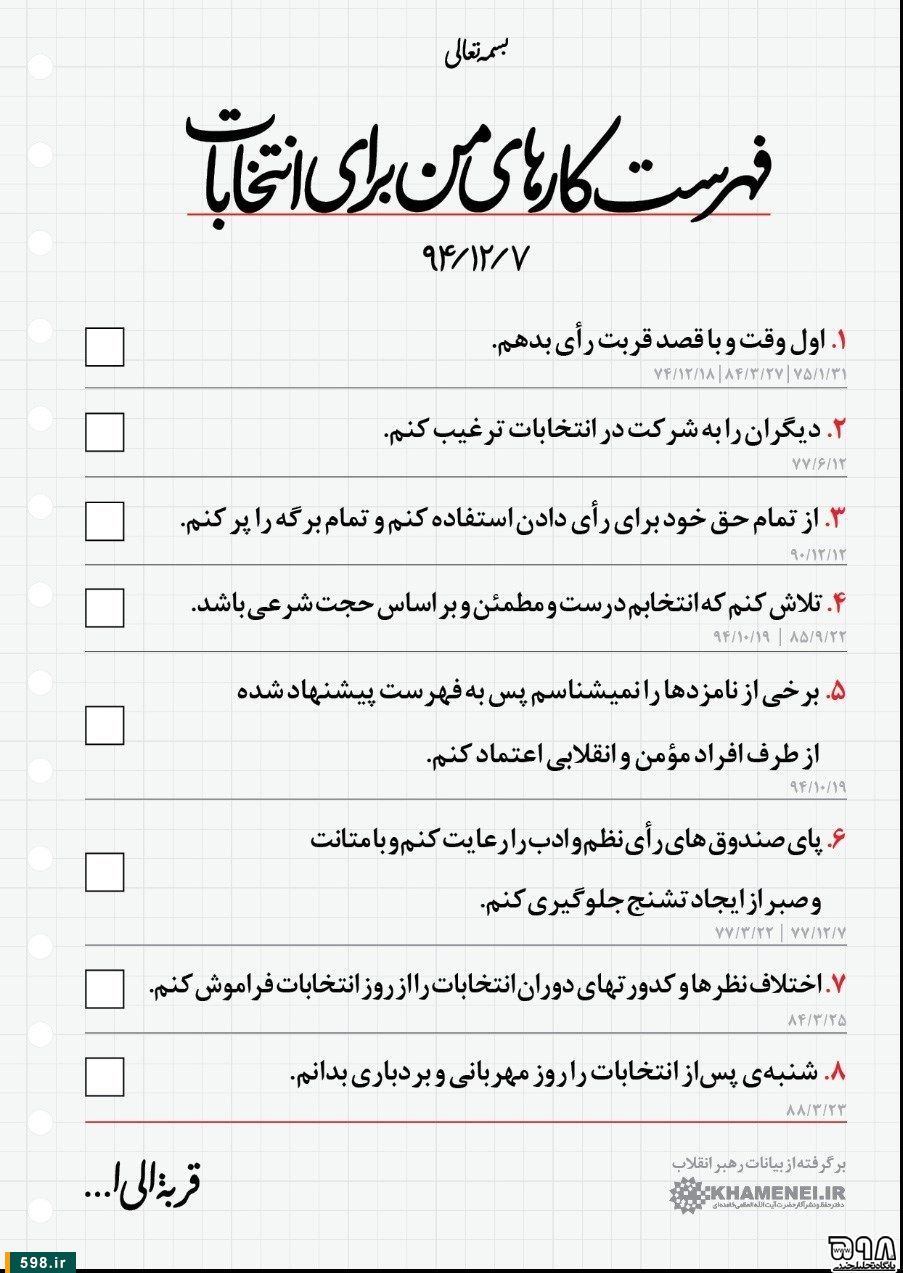 بسمه تعالی
فهرست کارهای من برای انتخابات
۹۴/۱۲/۷
۱. اول وقت و با قصد قربت رأی بدهم.
۷۵/۱/۳۱ | ۸۴/۳/۲۷ | ۷۴/۱۲/۱۸
۲. دیگران را به شرکت در انتخابات ترغیب کنم.
۷۷/۶/۱۲
۳. از تمام حق خود برای رأی دادن استفاده کنم و تمام برگه را پر کنم.
۹۰/۱۲/۱۲
۴. تلاش کنم که انتخابم درست و مطمئن و بر اساس حجت شرعی باشد.
۸۵/۹/۲۲ | ۹۴/۱۰/۱۹
۵. برخی از نامزدها را نمیشناسم پس به فهرست پیشنهاد شده
از طرف افراد مؤمن و انقلابی اعتماد کنم.
۹۴/۱۰/۱۹
۶. پای صندوق های رأی نظم و ادب را رعایت کنم و با متانت
و صبر از ایجاد تشنج جلوگیری کنم.
۷۷/۱۲/۷ | ۷۷/۳/۲۲
۷. اختلاف نظرها و کدورتهای دوران انتخابات را از روز انتخابات فراموش کنم.
۸۴/۳/۲۵
۸. شنبه‌ی پس از انتخابات را روز مهربانی و بردباری بدانم.
۸۸/۳/۲۳
برگرفته از بیانات رهبر انقلاب
KHAMENEI.IR
دفتر حفظ و نشر آثار حضرت آیت‌الله العظمی خامنه‌ای
قربة الی ا...
598.ir
www
۵۹۸
پایگاه تحلیل خبری